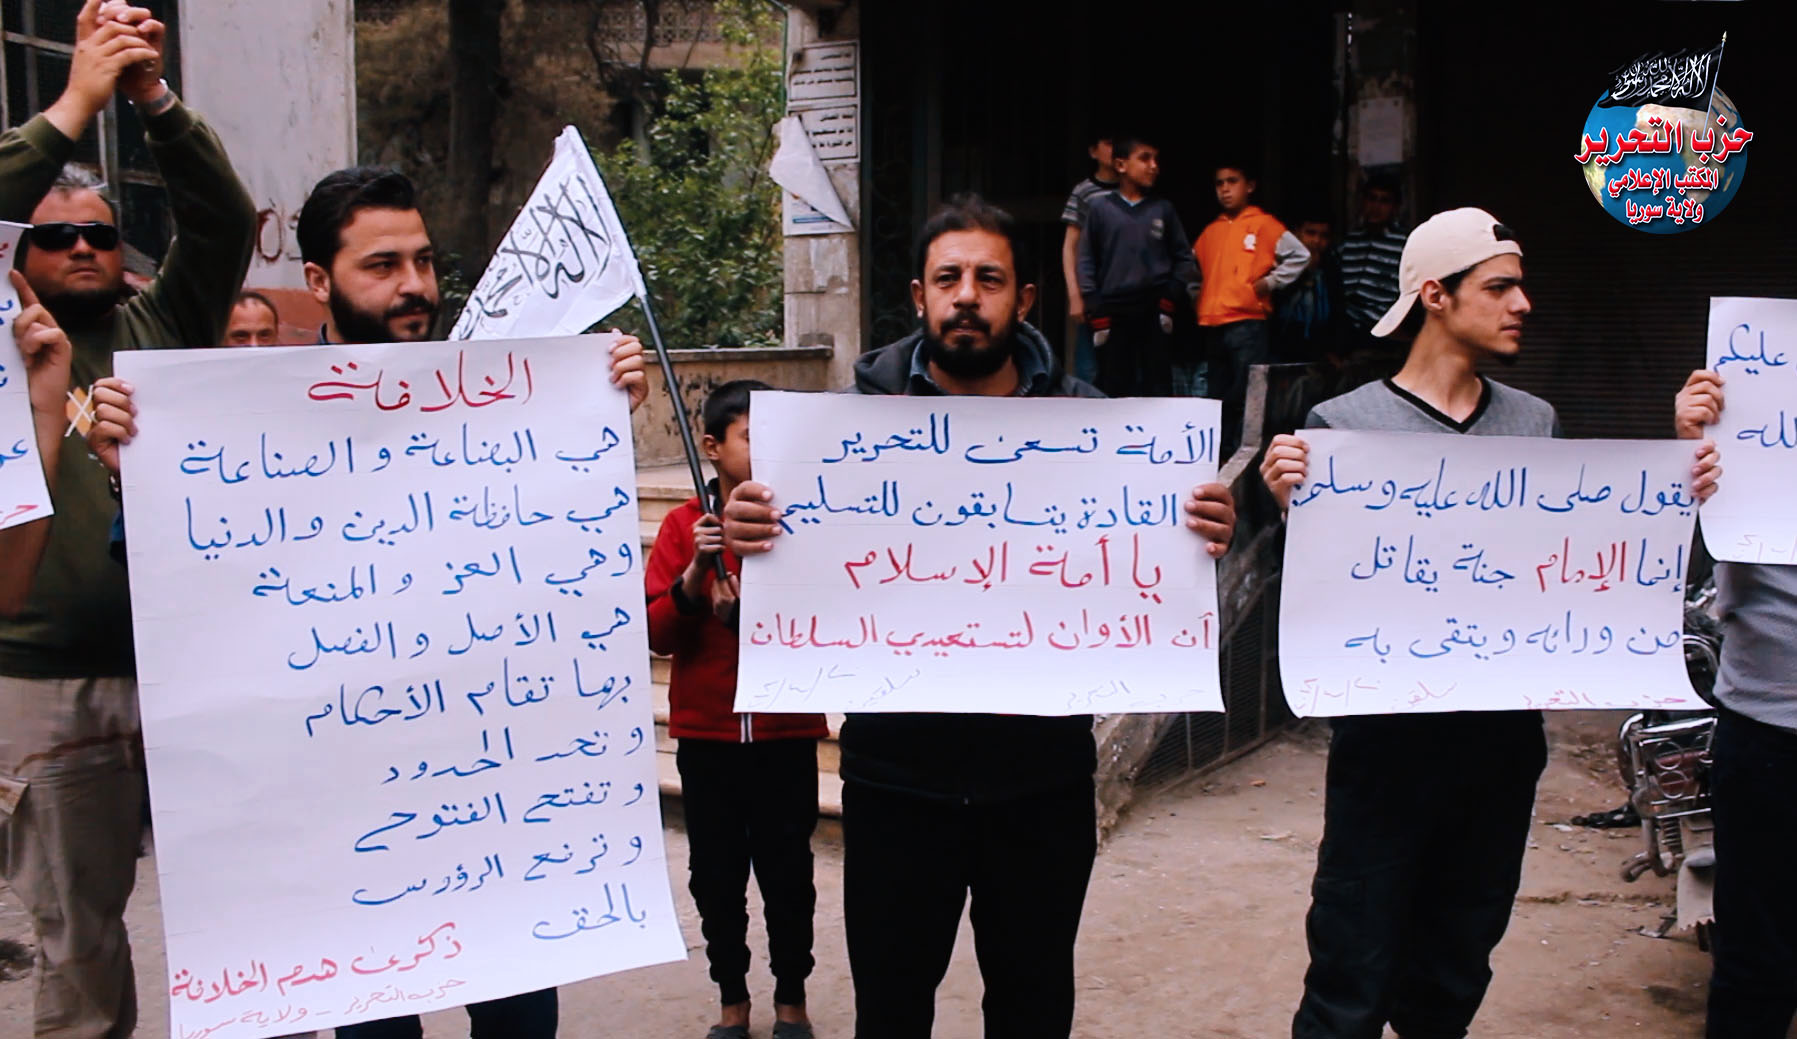 حزب التحرير
المكتب الإعلامي
ولاية سوريا
لا إله إلا الله محمد
عليكم
الله
يقول صلى الله عليه وسلم:
إنما الإمام جنة يقاتل
من ورائه ويتقى به
حزب التحرير سلقين
الأمة تسعى للتحرير
القادة يتسابقون للتسليم
يا أمة الإسلام
آن الأوان لتستعيدي السلطان
حزب التحرير سلقين
الخلافة
هي البضاعة و الصناعة
هي حافظة الدين والدنيا
وهي العز و المنعة
هي الأصل و الفصل
بها تقام الأحكام
و تحد الحدود
و تفتح الفتوح
و ترفع الرؤوس
بالحق
ذكرى هدم الخلافة
حزب التحرير - ولاية سوريا